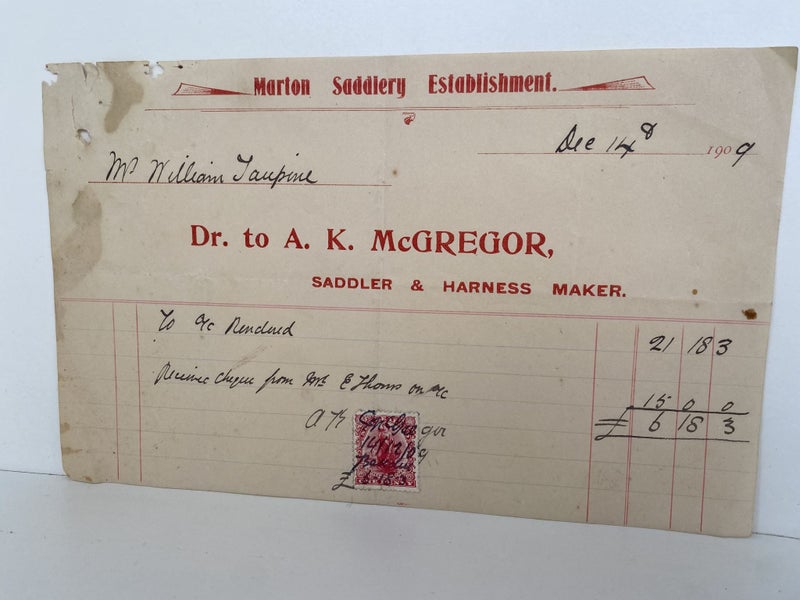 Marton Saddlery Establishment.
Dec 14th 1909
Mr William Taupine
Dr. to A. K. McGREGOR,
SADDLER & HARNESS MAKER.
To a/c Rendered 21 18 3
Received cheque from Mr E Thoms on a/c 15 0 0
£ 6 18 3
A K McGregor
14/12/09
£ 6-18-3